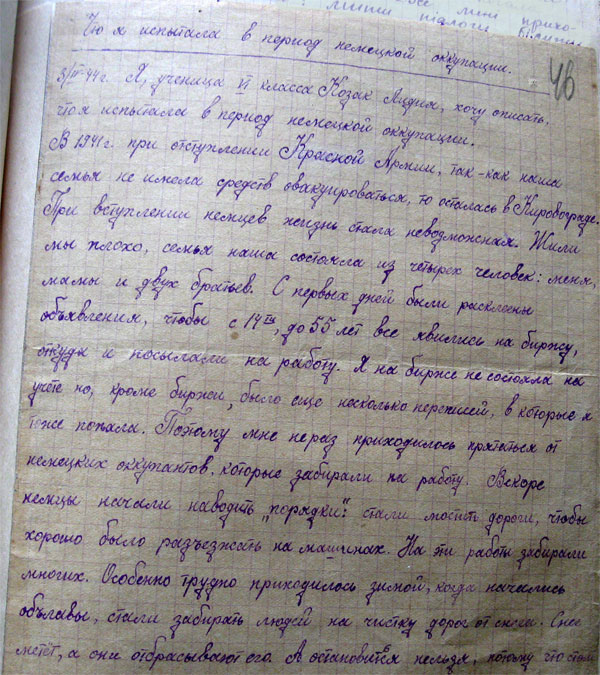 Что я испытала в период немецкой оккупации.
46
3/VI-44г. Я, ученица VI класса Козак Лидия, хочу описать,
что я испытала в период немецкой оккупации.
В 1941г. при отступлении Красной Армии, так-как наша
семья не имела средств эвакуироваться, то осталась в Кировограде.
При вступлении немцев жизнь стала невозможная. Жили
мы плохо, семья наша состояла из четырех человек: меня,
мамы и двух братьев. С первых дней были расклеены
объявления, чтобы с 14ти, до 55 лет все явились на биржу,
откуда и посылали на работу. Я на бирже не состояла на
учёте но, кроме биржи, было еще несколько в которые я
тоже попала. Потому мне нераз приходилось прятаться от
немецких оккупантов, которые забирали на работу. Вскоре
немцы начали наводить „порядки": стали мостить дороги, чтобы
хорошо было разъезжать на машинах. На эти работы забирали
многих. Особенно трудно приходилось зимой, когда начались
облавы, стали забирать людей на чистку дорог от снега. Снег
метёт, а они отбрасывают его. А остановиться нельзя, потому что